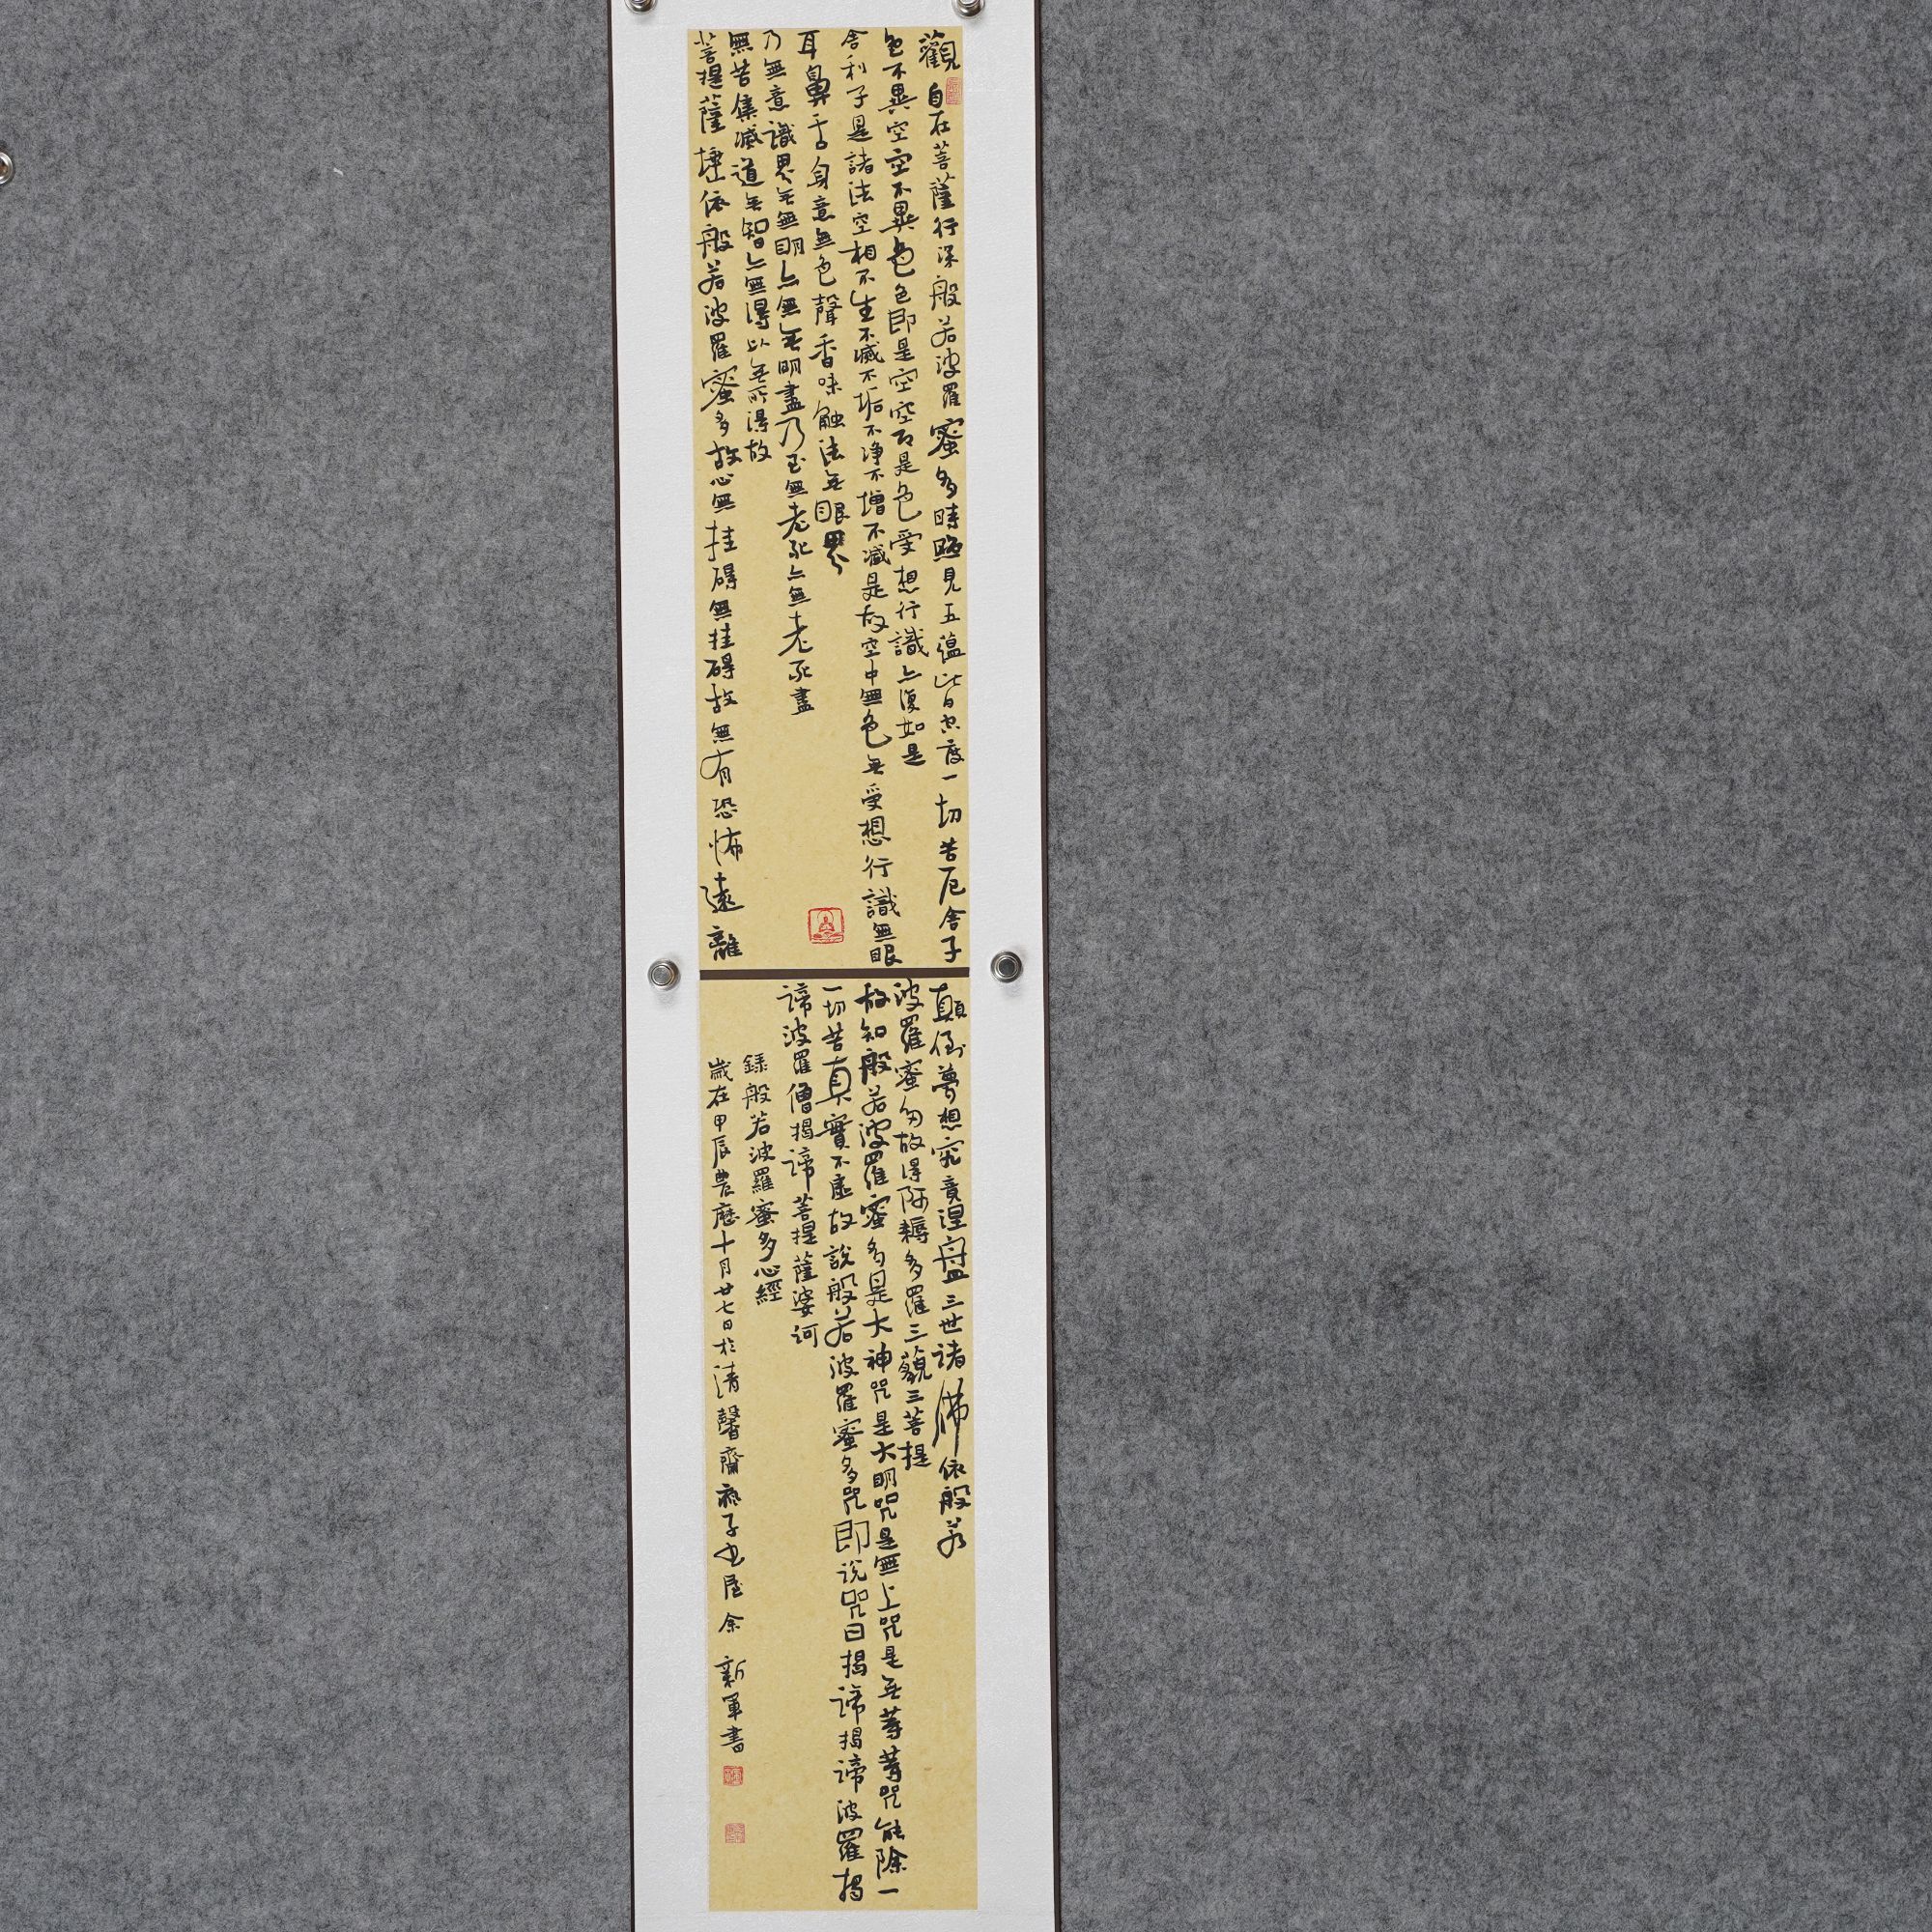 觀自在菩薩行深般若波羅蜜多時照見五蘊皆空度一切苦厄舍子
色不異空空不異色色即是空空即是色受想行識亦復如是
舍利子是諸法空相不生不滅不垢不淨不增不減是故空中無色無受想行識無眼
耳鼻舌身意無色聲香味触法無眼界
乃無意識界無無明亦無無明盡乃至無老死亦無老死盡
無苦集滅道無智亦無得以無所得故
菩提薩埵依般若波羅蜜多故心無挂碍無挂碍故無有恐怖遠離
顛倒夢想究竟涅盤三世诸佛依般若
波羅蜜多故得阿耨多羅三藐三菩提
故知般若波羅蜜多是大神咒是大明咒是無上咒是無等等咒能除一
一切苦真實不虛故說般若波羅蜜多咒即说咒曰揭谛揭谛波羅揭
谛波羅僧揭谛菩提薩婆诃
録般若波羅蜜多心經
歲在甲辰農曆十月廿七日於清馨齋 子书屋余新軍書